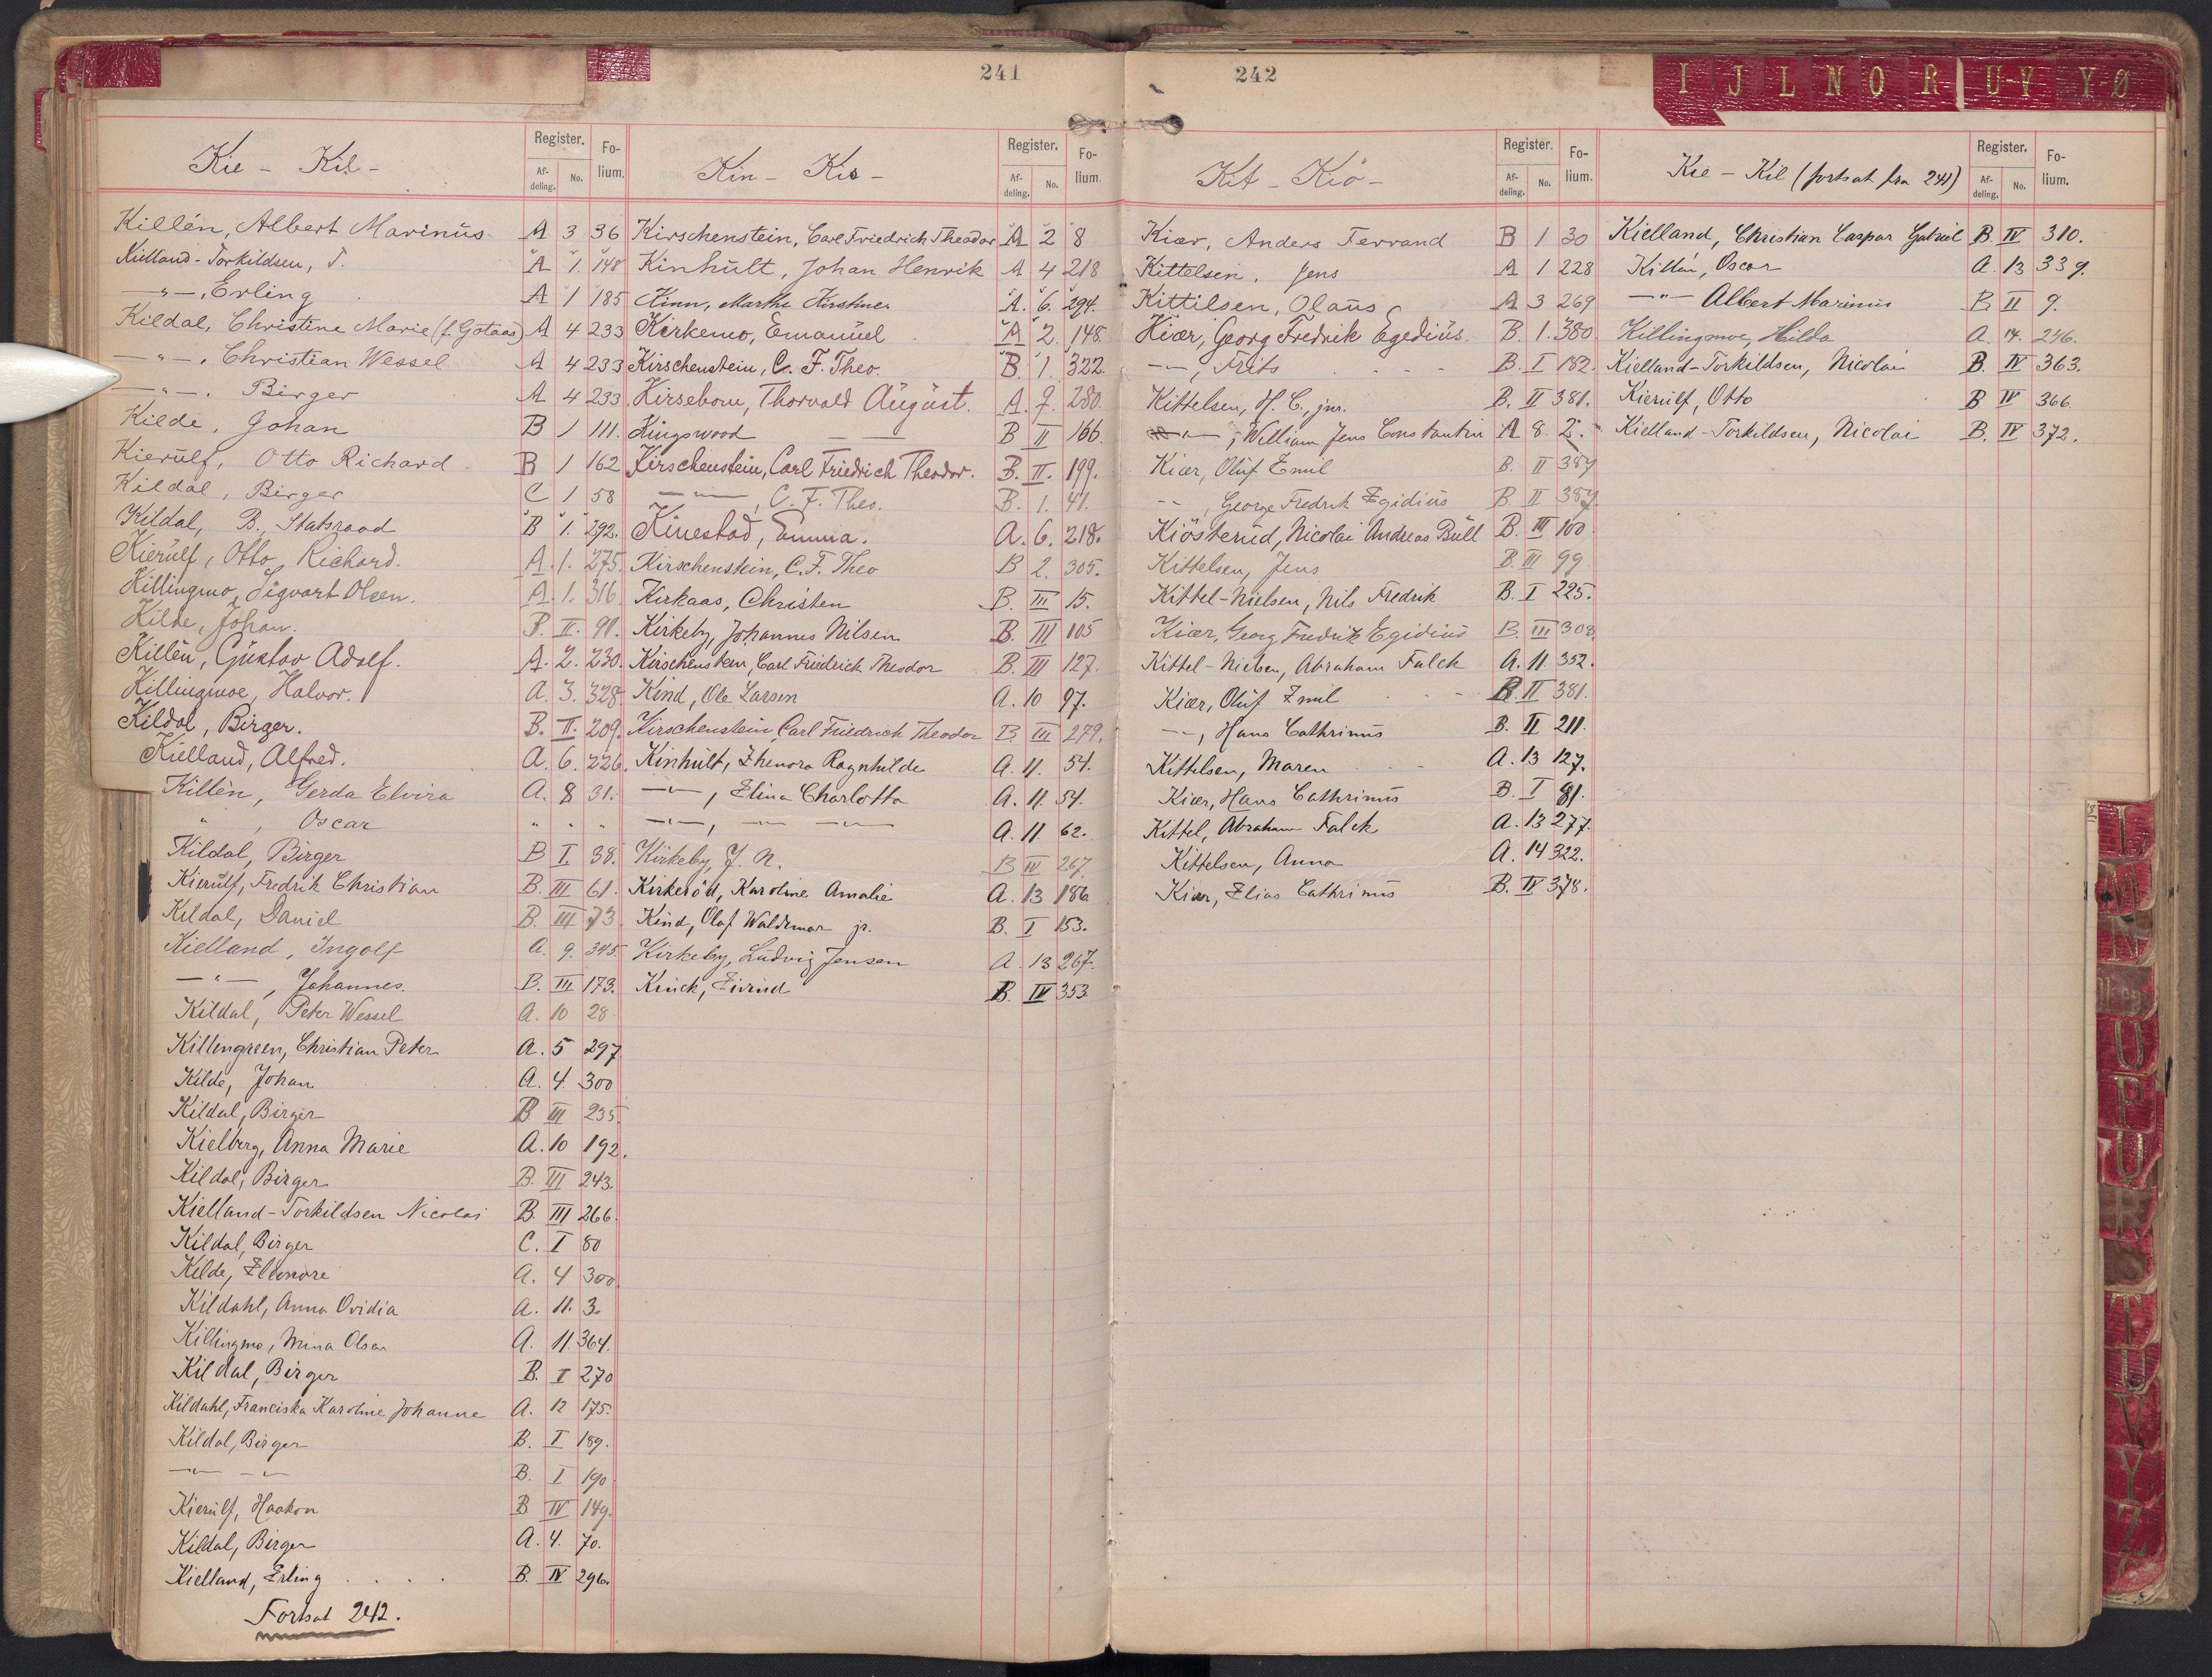 241
Kie - Kil -
Register.
Af-deling.
No.
Fo-lium.
Killén, Albert Marinus A 3 36
Kielland-Torkildsen, T. A 1. 148
—"—, Erling A 1 185
Kildal, Christine Marie (f. Gotaas) A 4 233
—"—, Christian Wessel A 4 233
—"—, Birger A 4 233
Kilde, Johan B 1 111.
Kierulf, Otto Richard B 1 162
Kildal, Birger C 1 58
Kildal, B., Statsraad B 1. 292.
Kierulf, Otto Richard. A. 1. 275.
Killingmo, Sigvart Olsen. A. 1. 316.
Kilde, Johan. B. II. 91.
Killén, Gustav Adolf. A. 2. 230.
Killingmoe, Halvor. A. 3. 328.
Kildal, Birger. B. II. 209.
Kielland, Alfred. A. 6. 226.
Killén, Gerda Elvira A. 8 31.
" , Oscar " " "
Kildal, Birger B I. 38.
Kierulf, Fredrik Christian B. III 61.
Kildal, Daniel B. III 73.
Kielland, Ingolf A. 9. 345.
—"—, Johannes. B. III 173.
Kildal, Peter Wessel A. 10 28.
Killengreen, Christian Peter A. 5 297
Kilde, Johan A. 4. 300
Kildal, Birger B III 235.
Kielberg, Anna Marie A. 10 192.
Kildal, Birger B. III 243.
Kielland-Torkildsen Nicolai B. III 266.
Kildal, Birger C. I 80
Kilde, Eleonore A. 4 300.
Kildahl, Anna Ovidia A. 11. 3.
Killingmo, Mina Olsen A. 11. 364.
Kildal, Birger B. I 270
Kildahl, Franciska Karoline Johanne A. 12 175.
Kildal, Birger B. I 189.
—"— —"— B. I 190
Kierulf, Haakon B IV 149.
Kildal, Birger A. 4. 70.
Kielland, Erling . . . . B. IV 296.
Fortsat 242.
Kin - Kis -
Register.
Af-deling.
No.
Fo-lium.
Kirschenstein, Carl Friedrich Theodor A 2 8
Kinhult, Johan Henrik A 4 218
Kinn, Marthe Kirstine. A. 6. 294.
Kirkemo, Emanuel A 2. 148.
Kirschenstein, C. F. Theo. B. 1. 322.
Kirsebom, Thorvald August. A. 7. 280.
Kingswood — — B II 166.
Kirschenstein, Carl Friedrich Theodor. B. II. 199.
—"—, C. F. Theo. B. 1. 41.
Kinestad, Emma. A. 6. 218.
Kirschenstein, C. F. Theo B 2. 305.
Kirkaas, Christen B. III 15.
Kirkeby, Johannes Nilsen B. III 105
Kirschenstein, Carl Friedrich Theodor B. III 127.
Kind, Ole Larsen A. 10 97.
Kirschenstein, Carl Friedrich Theodor B III 279.
Kinhult, Ehenora Ragnhilde A. 11. 54.
—"—, Elina Charlotta A. 11. 54.
—"—, —"— —"— A. 11. 62.
Kirkeby, J. N. B IV 267.
Kirkeröd, Karoline Amalie A. 13 186.
Kind, Olaf Waldemar jr. B. I 153.
Kirkeby, Ludvig Jensen A. 13 267.
Kinck, Eivind B. IV 353.
242
Kit - Kiö -
Register.
Af-deling.
No.
Fo-lium.
Kiær, Anders Ferrand B 1 30
Kittelsen, Jens A 1 228
Kittilsen, Olaus A 3 269
Kiær, Georg Fredrik Egedius. B. 1. 380.
—"—, Frits . . . . B. I 182.
Kittelsen, H. C., jnr. B. II 381.
—"—, William Jens Constantin A 8 2.
Kiær, Oluf Emil B. II 387
—"—, George Fredrik Egidius B II 387.
Kiösterud, Nicolai Andreas Bull B. III 100.
Kittelsen, Jens B. III 99
Kittel-Nielsen, Nils Fredrik B. I 225.
Kiær, Georg Fredrik Egidius B. III 308
Kittel-Nielsen, Abraham Falck A. 11. 352.
Kiær, Oluf Emil B. II 381.
—"—, Hans Cathrinus B. II 211.
Kittelsen, Maren A. 13 127.
Kiær, Hans Cathrinus B. I 81.
Kittel, Abraham Falck A. 13 277.
Kittelsen, Anna A. 14 322.
Kiær, Elias Cathrinus B. IV 378.
Kie - Kil (fortsat fra 241)
Register.
Af-deling.
No.
Fo-lium.
Kielland, Christian Caspar Gabriel B. IV 310.
Killén, Oscar A. 13 339.
—"— Albert Marinus B. II 9.
Killingmoe, Hilda A. 14. 246.
Kielland-Torkildsen, Nicolai B. IV 363.
Kierulf, Otto B IV 366.
Kielland-Torkildsen, Nicolai B. IV 372.
I J L N O R U-V Y-Ø